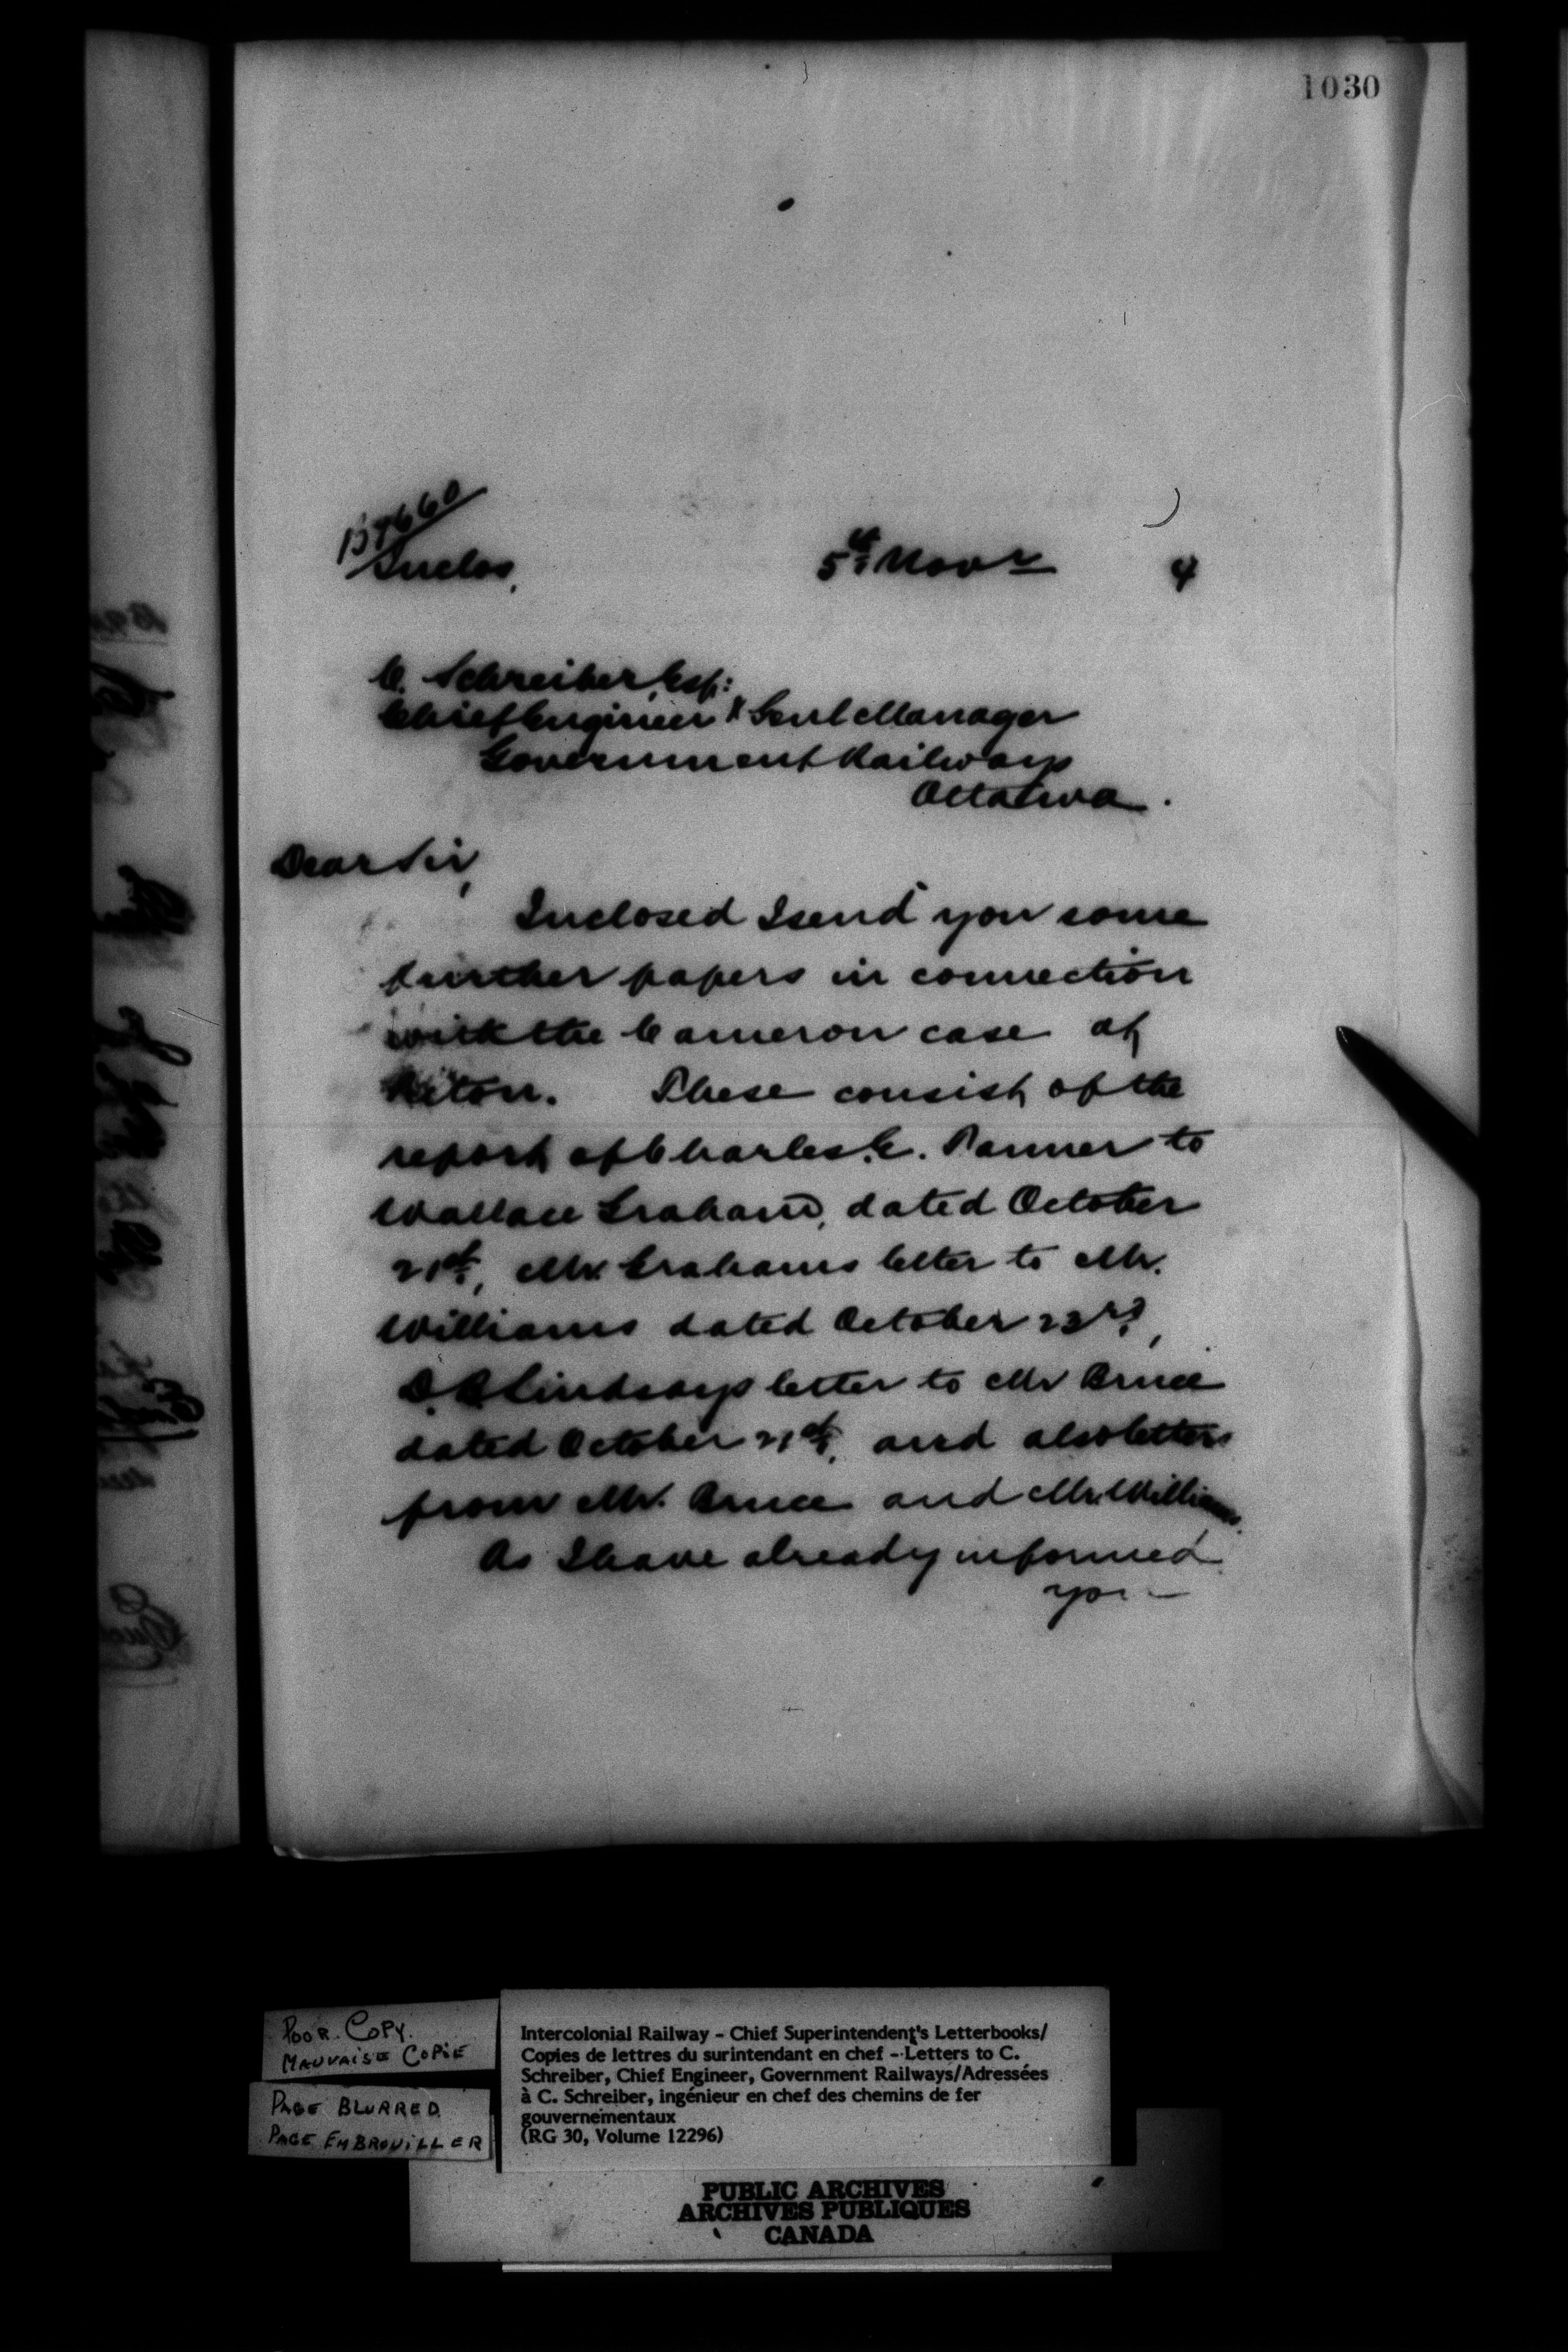 1030
Inclos.
5th Novr 4
C. Schreiber, Esq:
Chief Engineer & Genl Manager
Government Railways
Ottawa.
Dear Sir,
Inclosed I send you some
further papers in connection
with the Cameron case at
These consist of the
report of Charles C. Tanner to
Wallace Graham, dated October
21st, Mr. Grahams letter to Mr.
Williams dated October 23rd,
Lindsays letter to Mr Bruce
dated October 21st, and also letters
from Mr. Bruce and Mr. Williams.
As I have already informed
you
POOR COPY.
MAUVAISE COPIE
PAGE BLURRED
PAGE EMBROUILLER
Intercolonial Railway - Chief Superintendent's Letterbooks/
Copies de lettres du surintendant en chef - Letters to C.
Schreiber, Chief Engineer, Government Railways/Adressées
à C. Schreiber, ingénieur en chef des chemins de fer
gouvernementaux
(RG 30, Volume 12296)
PUBLIC ARCHIVES
ARCHIVES PUBLIQUES
CANADA